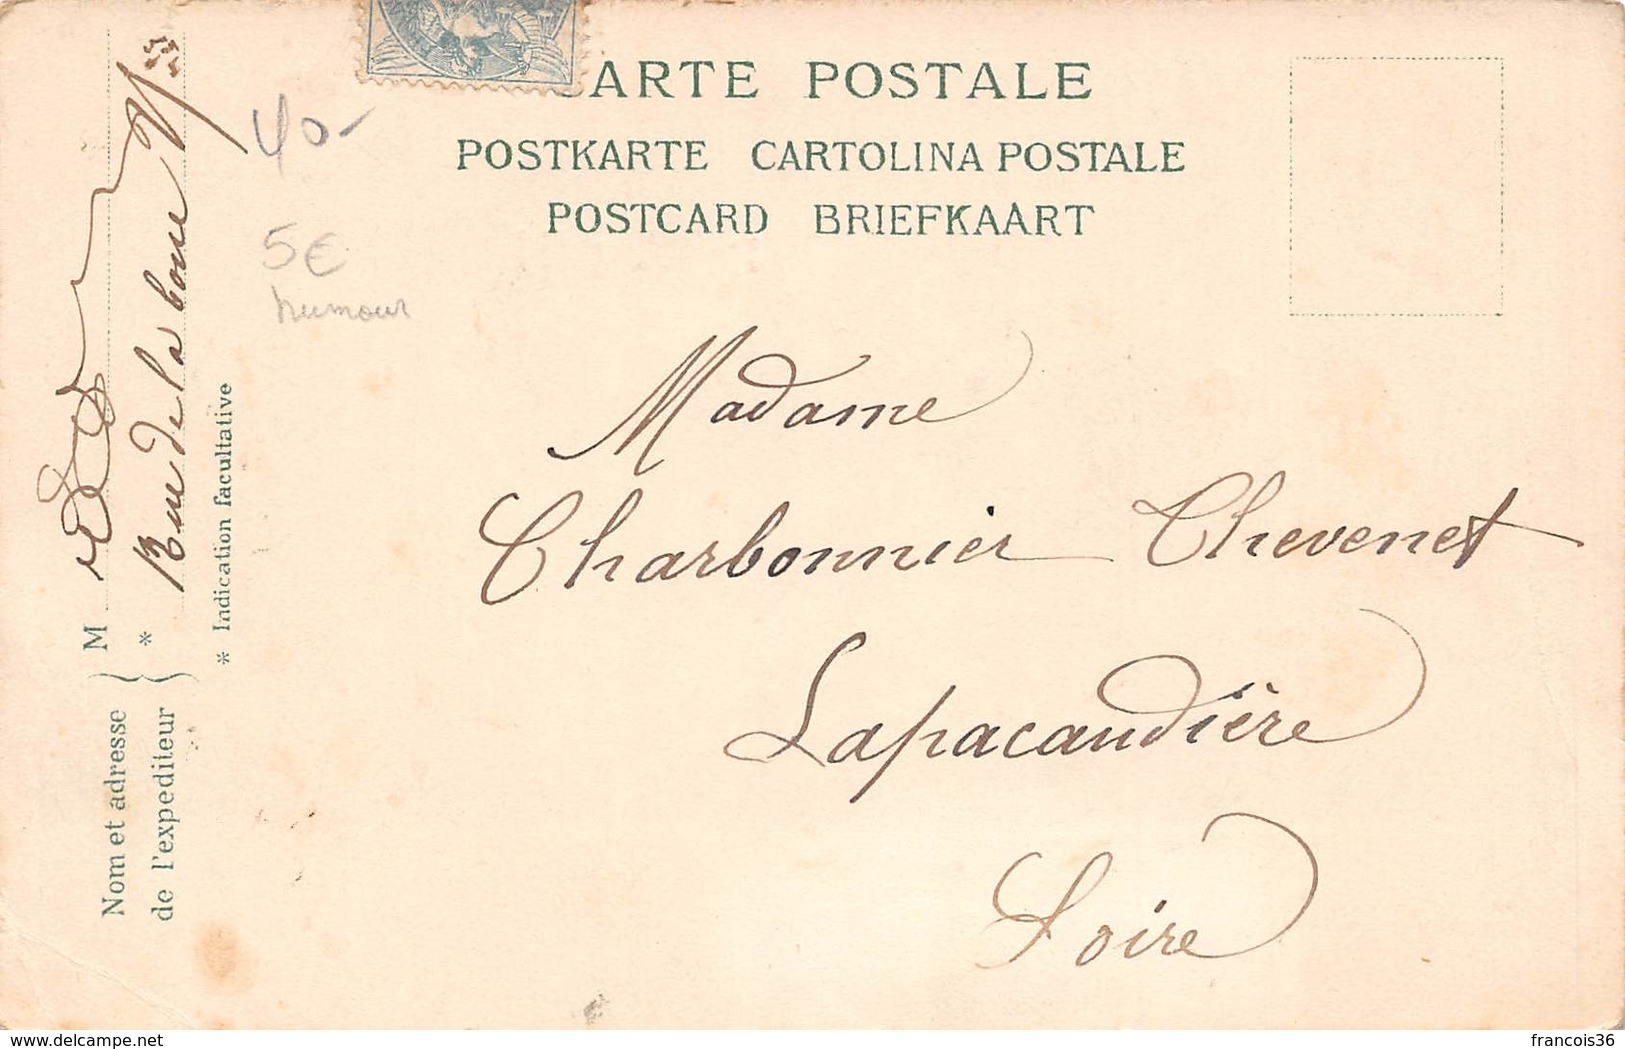 CARTE POSTALE
POSTKARTE CARTOLINA POSTALE
POSTCARD BRIEFKAART
40-
5€
humour
Madame
Charbonnier Chevenet
Lapacaudière
Loire
Nom et adresse
de l'expediteur
M
*
Rue de la
* Indication facultative
www.delcampe.net
francois36